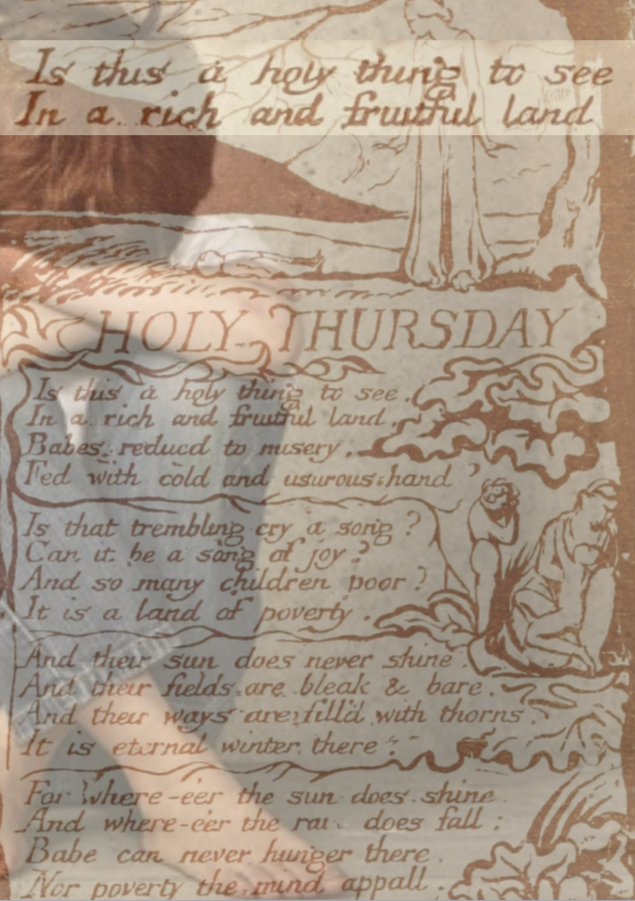 Is this a holy thing to see
In a rich and fruitful land
HOLY THURSDAY
Is this a holy thing to see.
In a rich and fruitful land.
Babes reducd to misery.
Fed with cold and usurous hand?
Is that trembling cry a song?
Can it be a song of joy?
And so many children poor?
It is a land of poverty.
And their sun does never shine.
And their fields are bleak & bare.
And their ways are fill'd with thorns
It is eternal winter there.
For where-e'er the sun does shine.
And where-e'er the does fall:
Babe can never hunger there.
Nor poverty the mind appall.